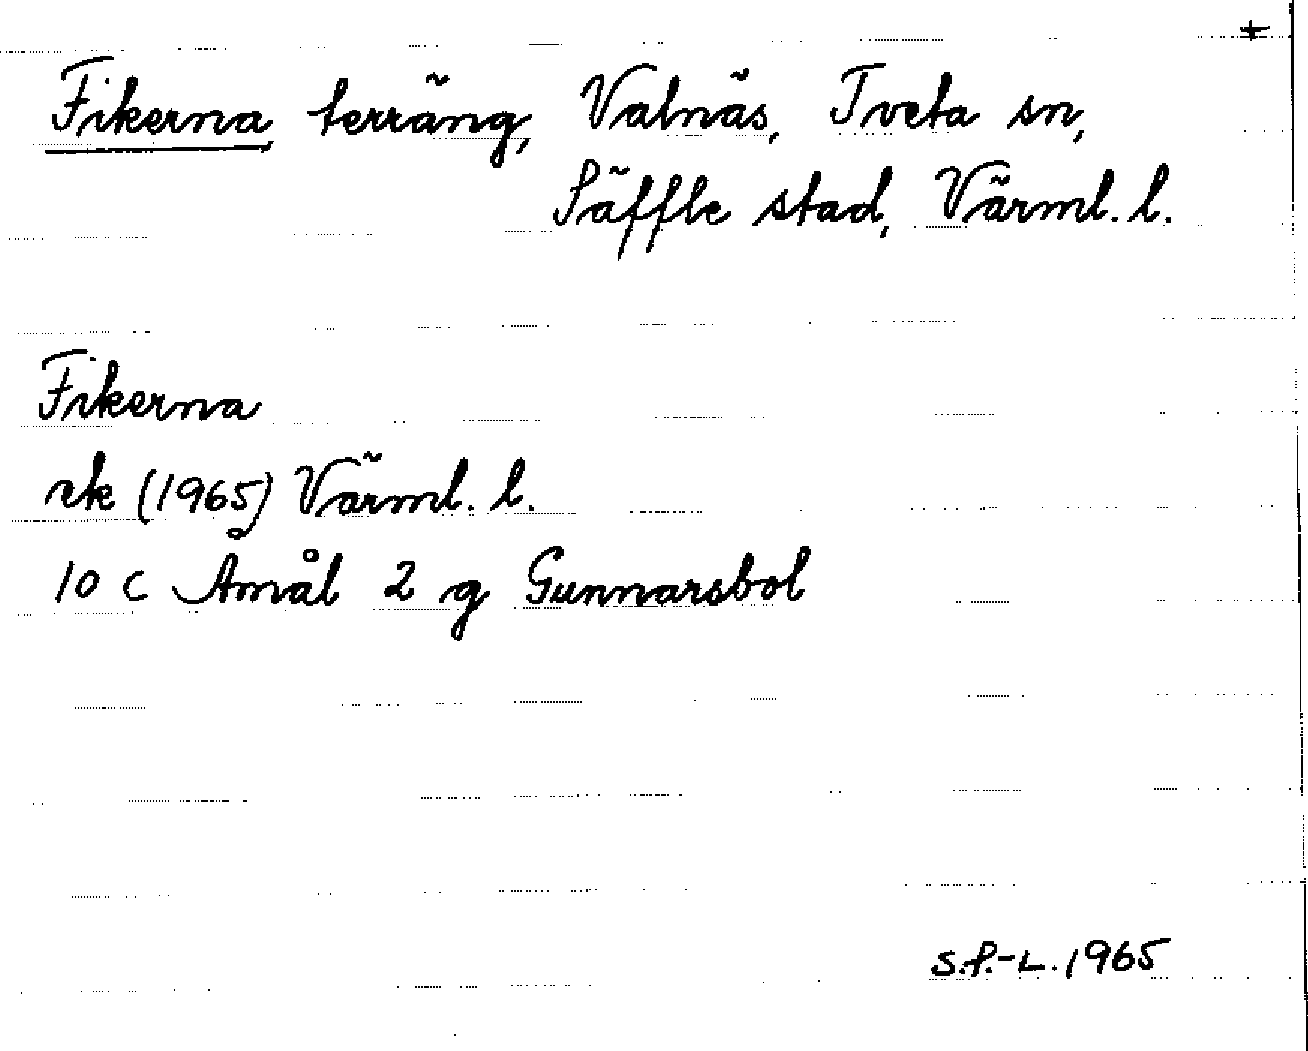 +
Fikerna terräng, Valnäs, Tveta sn,
Säffle stad, Värml. l.
Fikerna
rk (1965) Värml. l.
10 C Åmål 2 g Gunnarsbol
S.P.-L. 1965